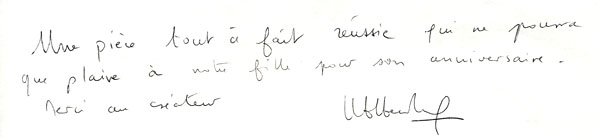 Une pièce tout à fait réussie qui ne pourra
que plaire à notre fille pour son anniversaire.
Merci au créateur